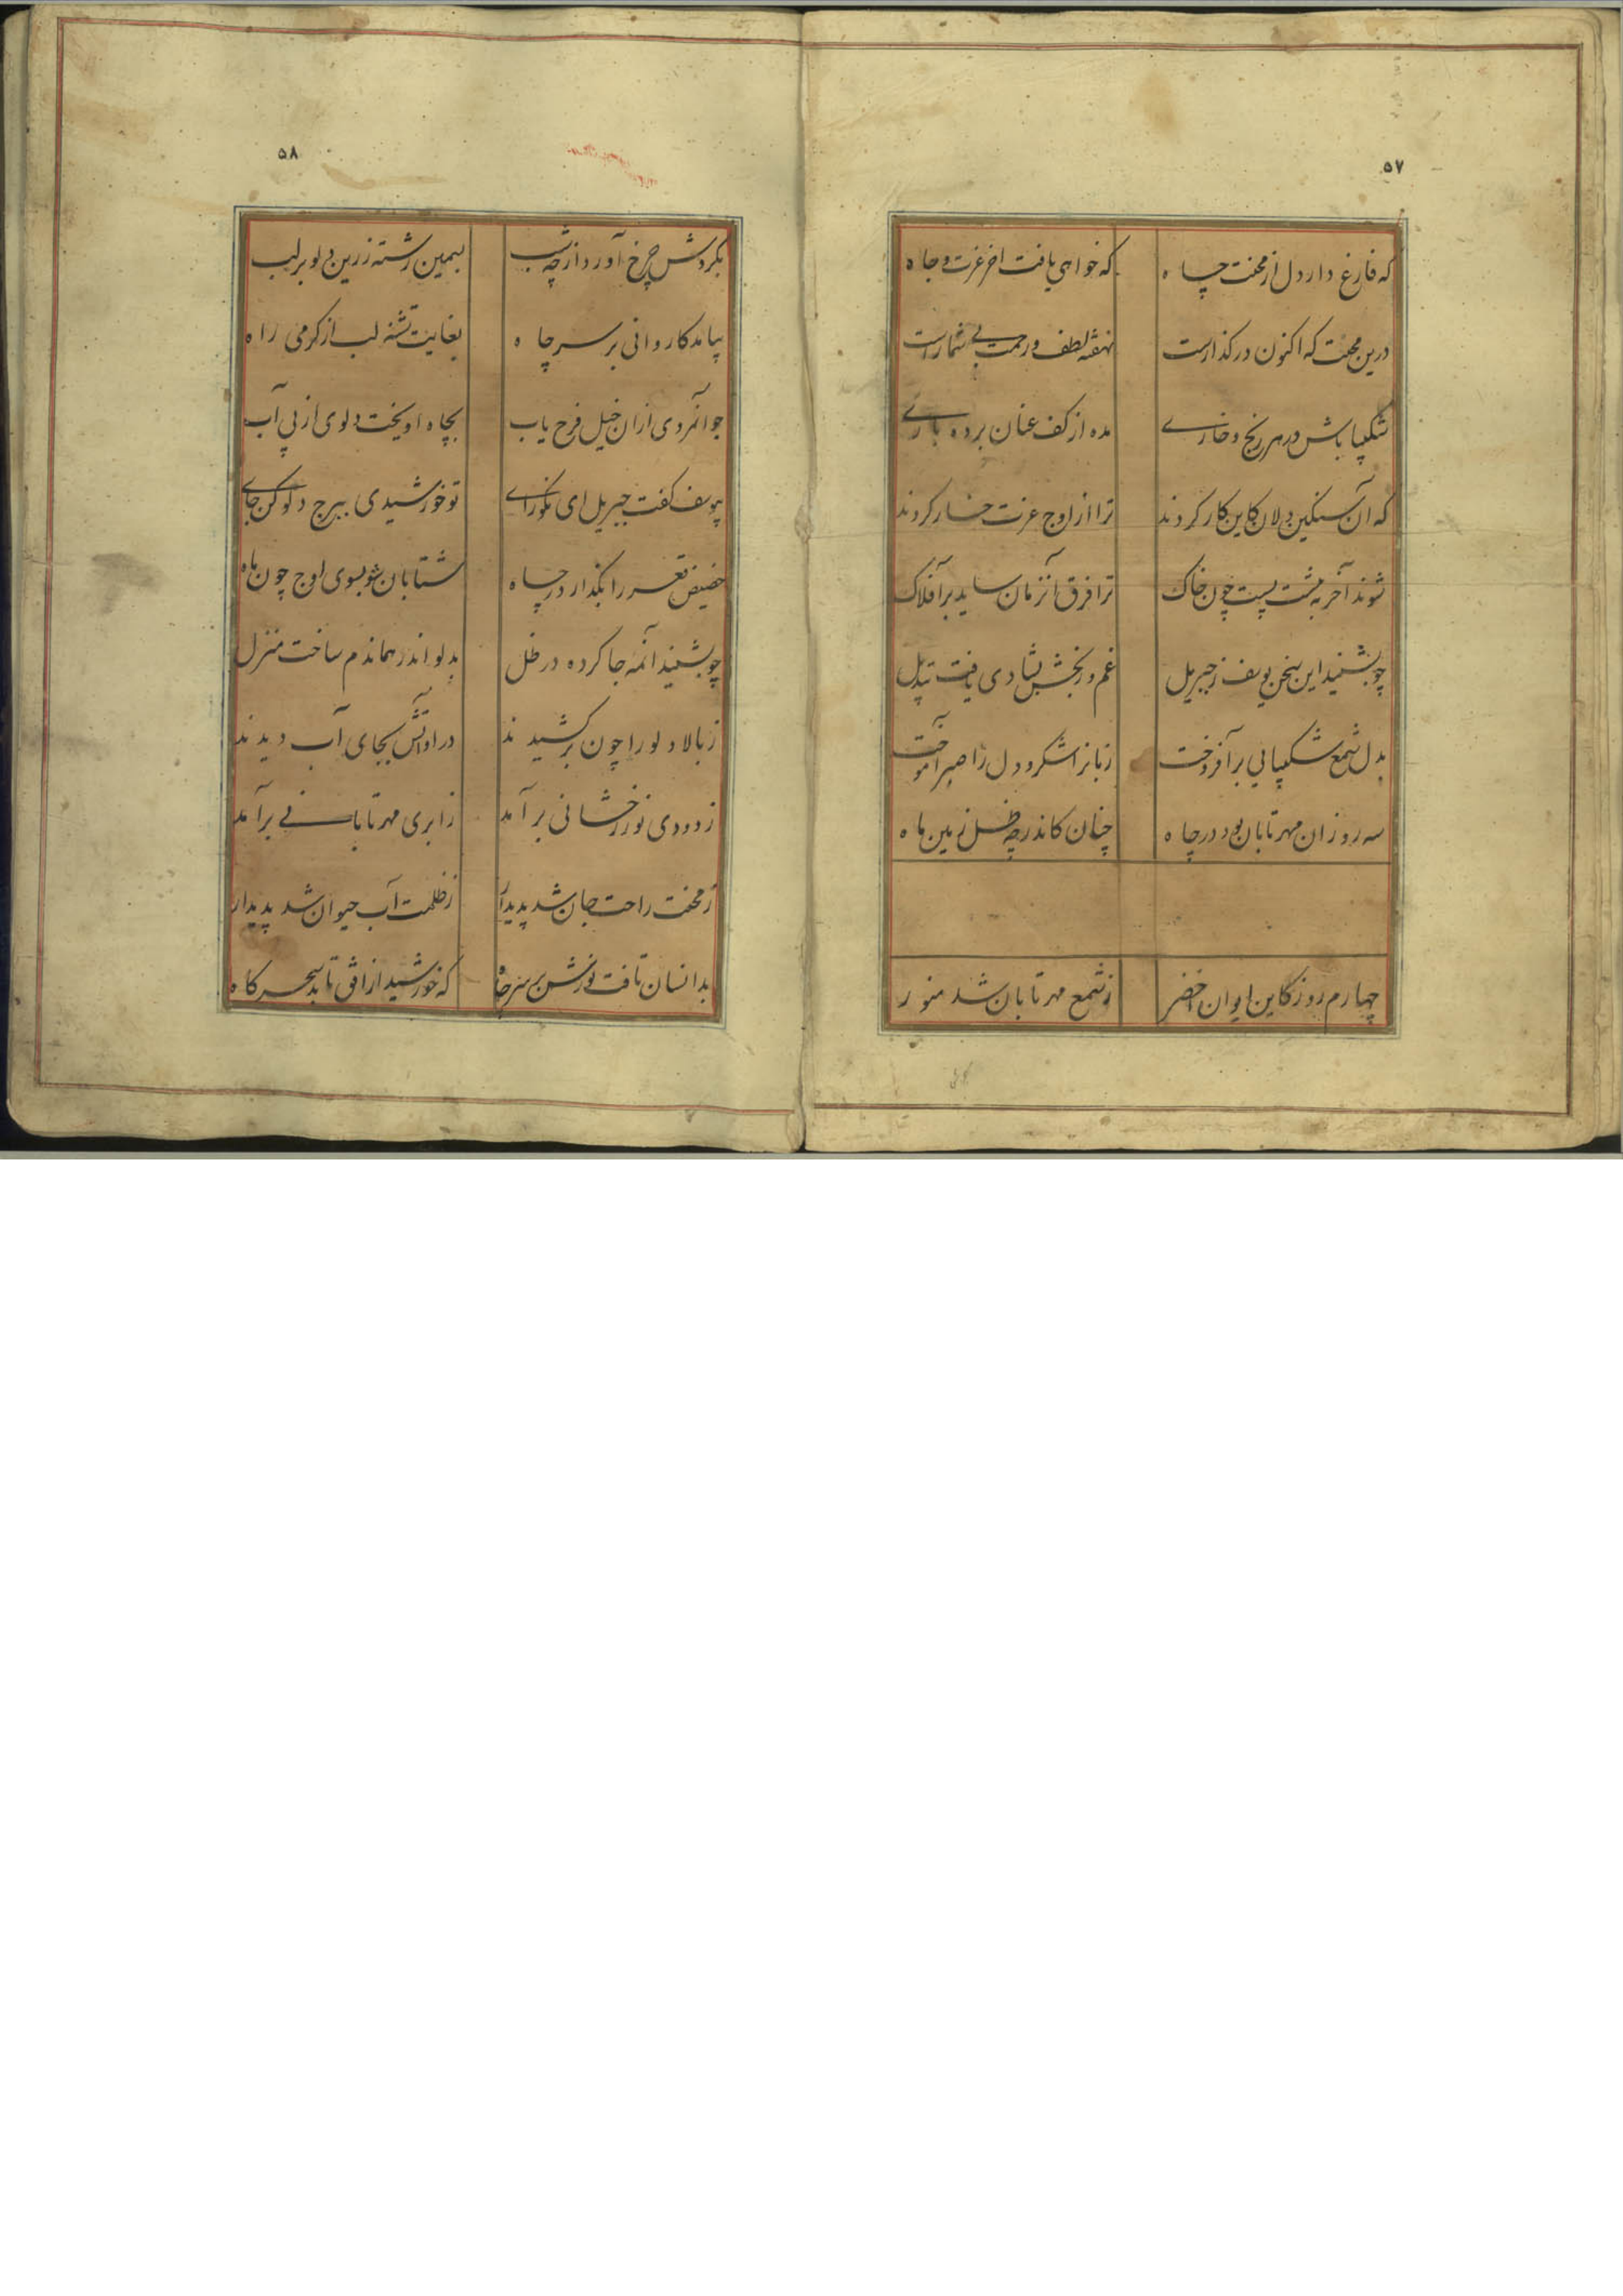 ۵۷
که فارغ دار دل از محنت چاه که خواهی یافت اخر عزت و جاه
درین محنت که اکنون در کذارست نهفته لطف و رحمت بی شمارست
شکیبا باش در هر رنج و خاری مده از کف عنان بردباری
که آن سنکین دلان کاین کار کردند ترا از اوج عزت خار کردند
شوند آخر به پشت پست چون خاک ترا فرق آنزمان ساید بر آفلاک
چو بشنید این سخن یوسف ز جبریل غم و رنجش بشادی یافت تبدیل
بدل شمع شکیبایی بر آفروخت زبانرا شکر و دل را صبر آموخت
سه روز ان مهر تابان بود در چاه چنان کاندر چه ظل زمین ماه
چهارم روز کاین ایوان اخضر ز شمع مهر تابان شد منور
۵۸
بکردش چرخ آورد از چه شب بسیمین رشته زرین دلو بر لب
بیامد کاروانی بر سر چاه بغایت تشنه لب از کرمی راه
جوانمردی ازان خیل فرح یاب بچاه اویخت دلوی از پی آب
بیوسف کفت جبریل ای نکورای تو خورشیدی ببرج دلو کن جای
حضیض قعر را بکذار در چاه شتابان شو بسوی اوج چون ماه
چو بشنید آنمه جا کرده در ظل بدلو اندر هماندم ساخت منزل
ز بالا دلو را چون بر کشیدند در او آتش بجای آب دیدند
ز دودی نور رخشانی بر آمد ز ابری مهر تابانی بر آمد
ز محنت راحت جان شد پدیدار ز ظلمت آب حیوان شد پدیدار
بدانسان تافت نورش بر سر چاه که خورشید از افق تابد سحرکاه